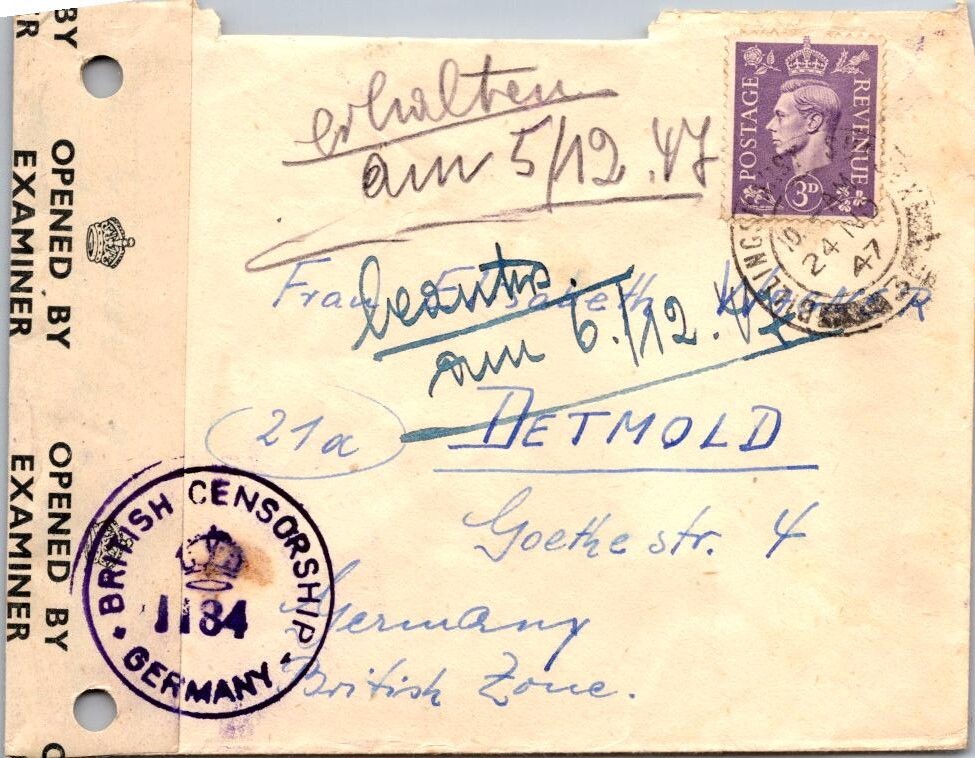 BY
R
OPENED BY
EXAMINER
OPENED BY
EXAMINER
erhalten
am 5/12.47
POSTAGE REVENUE
3D
24 NO
47
Frau Elisabeth
beantw.
am 6./12.47
21a DETMOLD
Goethestr. 4
Germany
British Zone.
BRITISH CENSORSHIP
1184
GERMANY